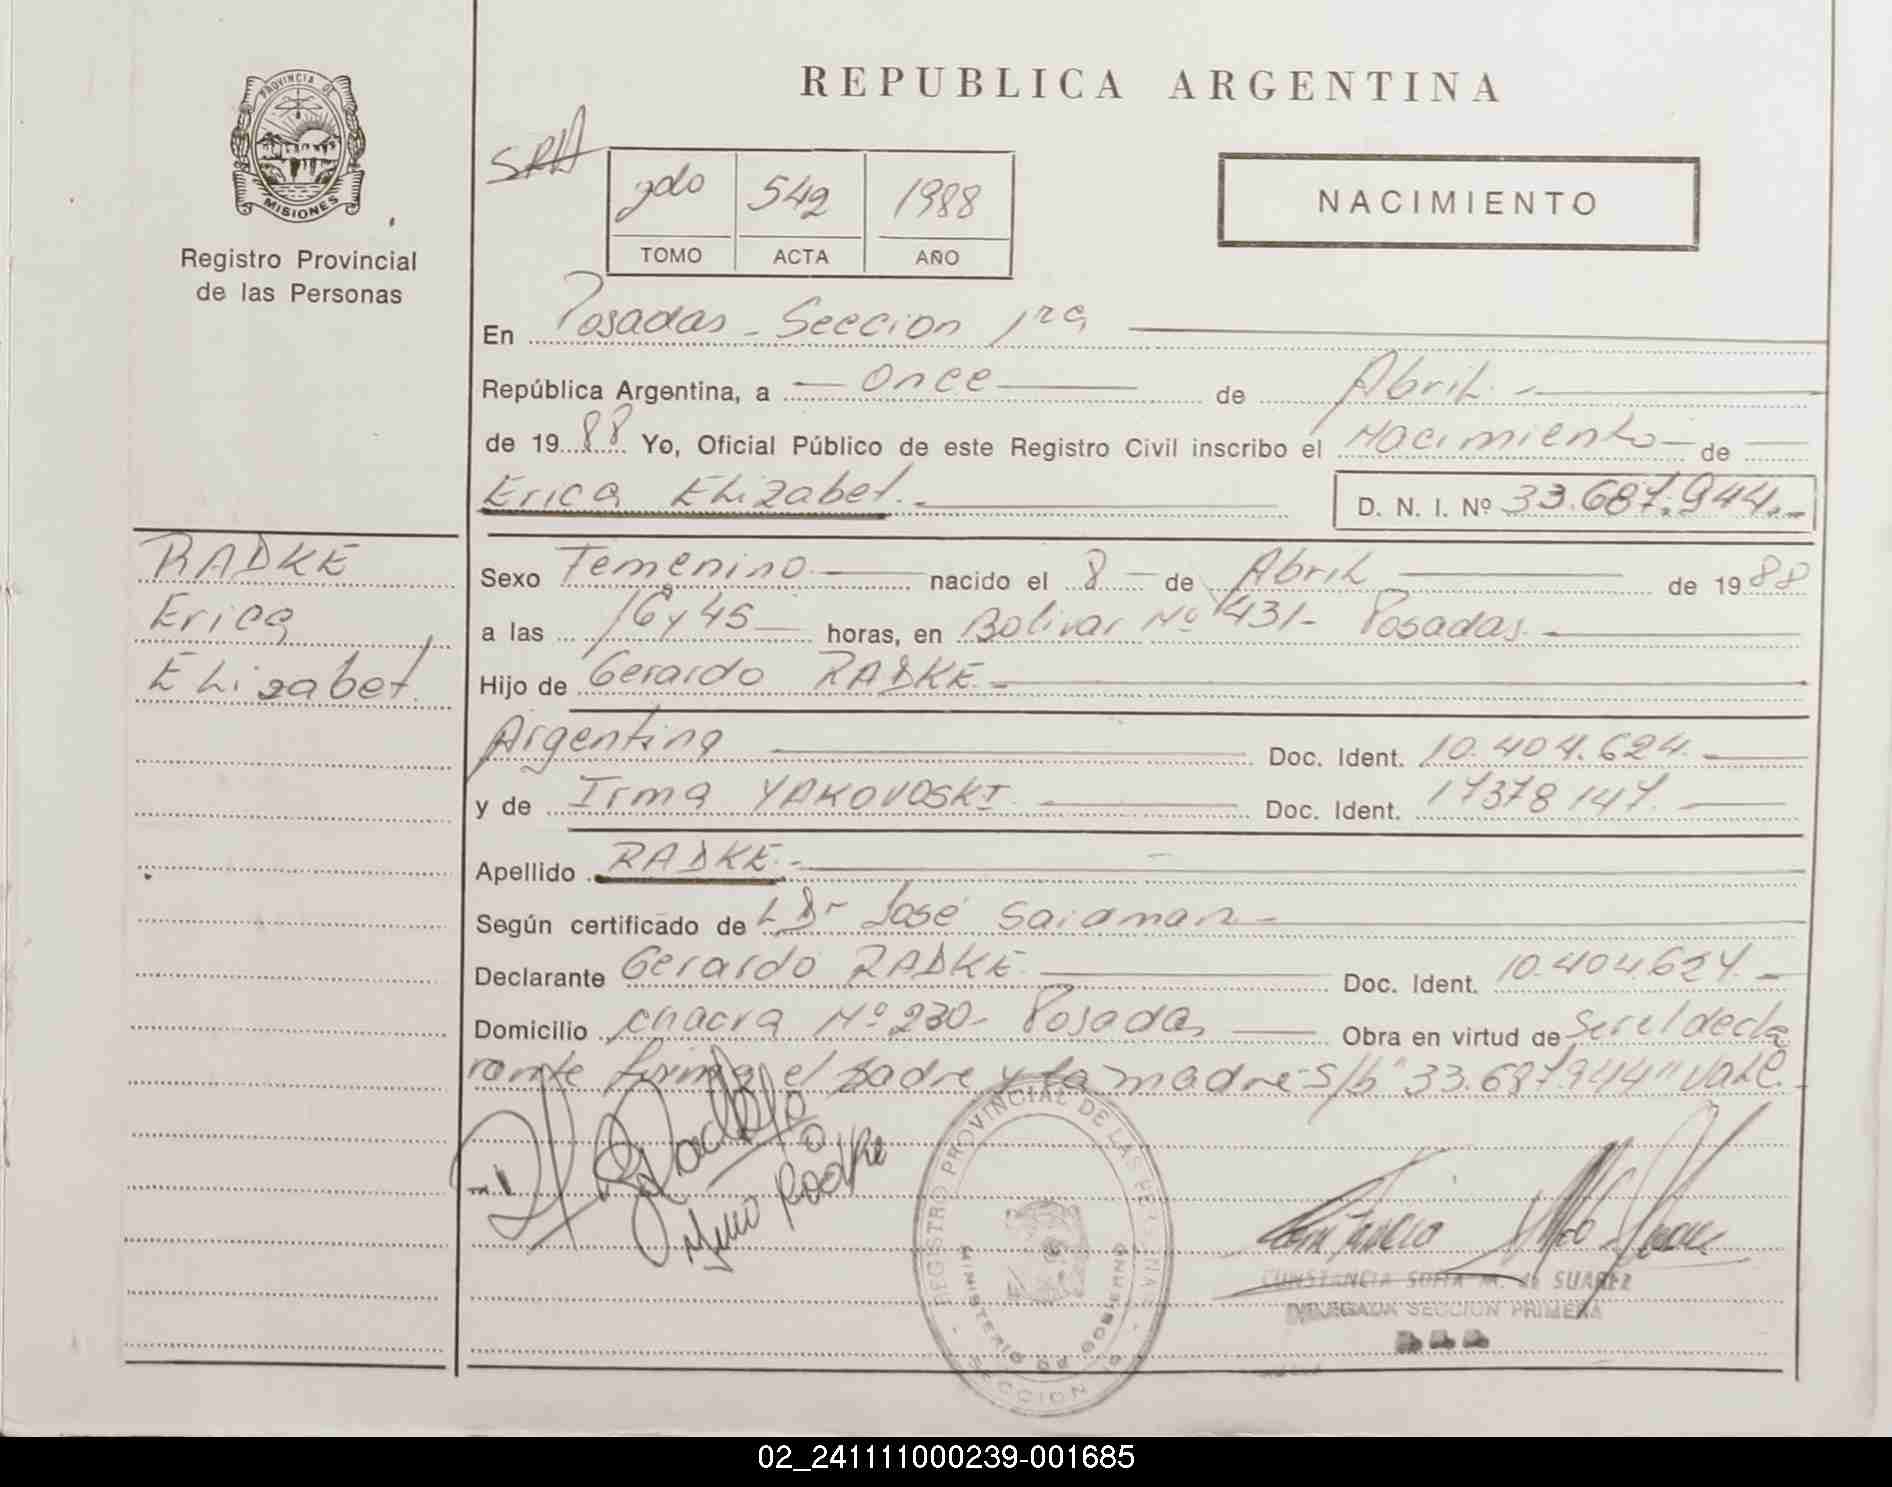 PROVINCIA DE
MISIONES
Registro Provincial
de las Personas
RADKE
Erica
Elizabet.
REPUBLICA ARGENTINA
2do 542 1988
TOMO ACTA AÑO
NACIMIENTO
En Posadas - Seccion 1ra
República Argentina, a once de Abril.
de 1988 Yo, Oficial Público de este Registro Civil inscribo el Nacimiento de
Erica Elizabet. D. N. I. Nº 33.687.944.-
Sexo Femenino nacido el 8 de Abril de 1988
a las 16 y 45 horas, en Bolivar Nº 1431- Posadas.
Hijo de Gerardo RADKE.
Argentina Doc. Ident. 10.404.624.
y de Irma YAKOVOSKI. Doc. Ident. 17378147.
Apellido RADKE.
Según certificado de Dr José
Declarante Gerardo RADKE. Doc. Ident. 10.404.624.
Domicilio chacra Nº 230- Posadas Obra en virtud de ser el decla
rante firma el padre y la madre S/b "33.687.944" Vale.
REGISTRO PROVINCIAL DE LAS PERSONAS
MINISTERIO DE GOBIERNO
SECCION
CONSTANCIA SOFIA M. de SUAREZ
DELEGADA SECCION PRIMERA
02_241111000239-001685